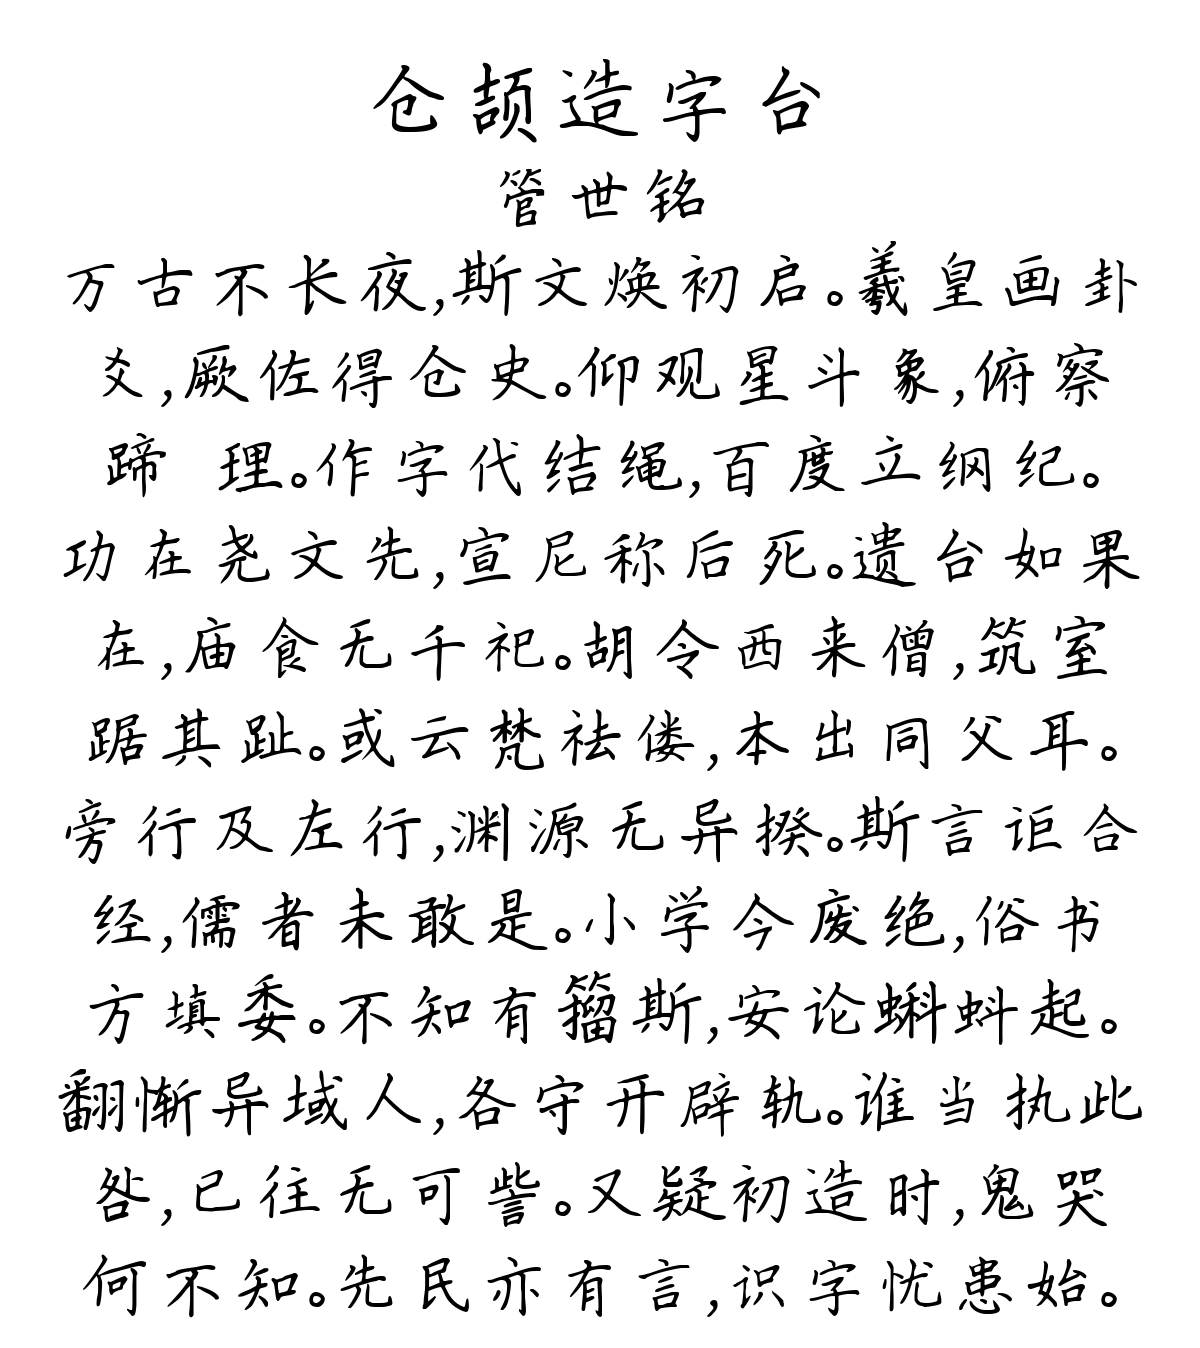 仓颉造字台
管世铭
万古不长夜,斯文焕初启。羲皇画卦
爻,厥佐得仓史。仰观星斗象,俯察
蹄 理。作字代结绳,百度立纲纪。
功在尧文先,宣尼称后死。遗台如果
在,庙食无千祀。胡令西来僧,筑室
踞其趾。或云梵祛偻,本出同父耳。
旁行及左行,渊源无异揆。斯言讵合
经,儒者未敢是。小学今废绝,俗书
方填委。不知有籀斯,安论蝌蚪起。
翻惭异域人,各守开辟轨。谁当执此
咎,已往无可訾。又疑初造时,鬼哭
何不知。先民亦有言,识字忧患始。